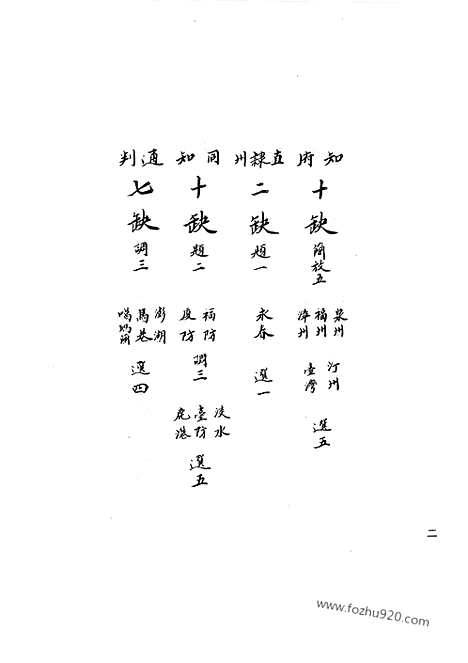 知府
十缺
簡放五
泉州
福州
漳州
汀州
臺灣
選五
直隸州
二缺
題一
永春
選一
同知
十缺
題二
福防
廈防
調三
淡水
臺防
鹿港
選五
通判
七缺
調三
澎湖
馬巷
噶瑪蘭
選四
二
www.fozhu920.com